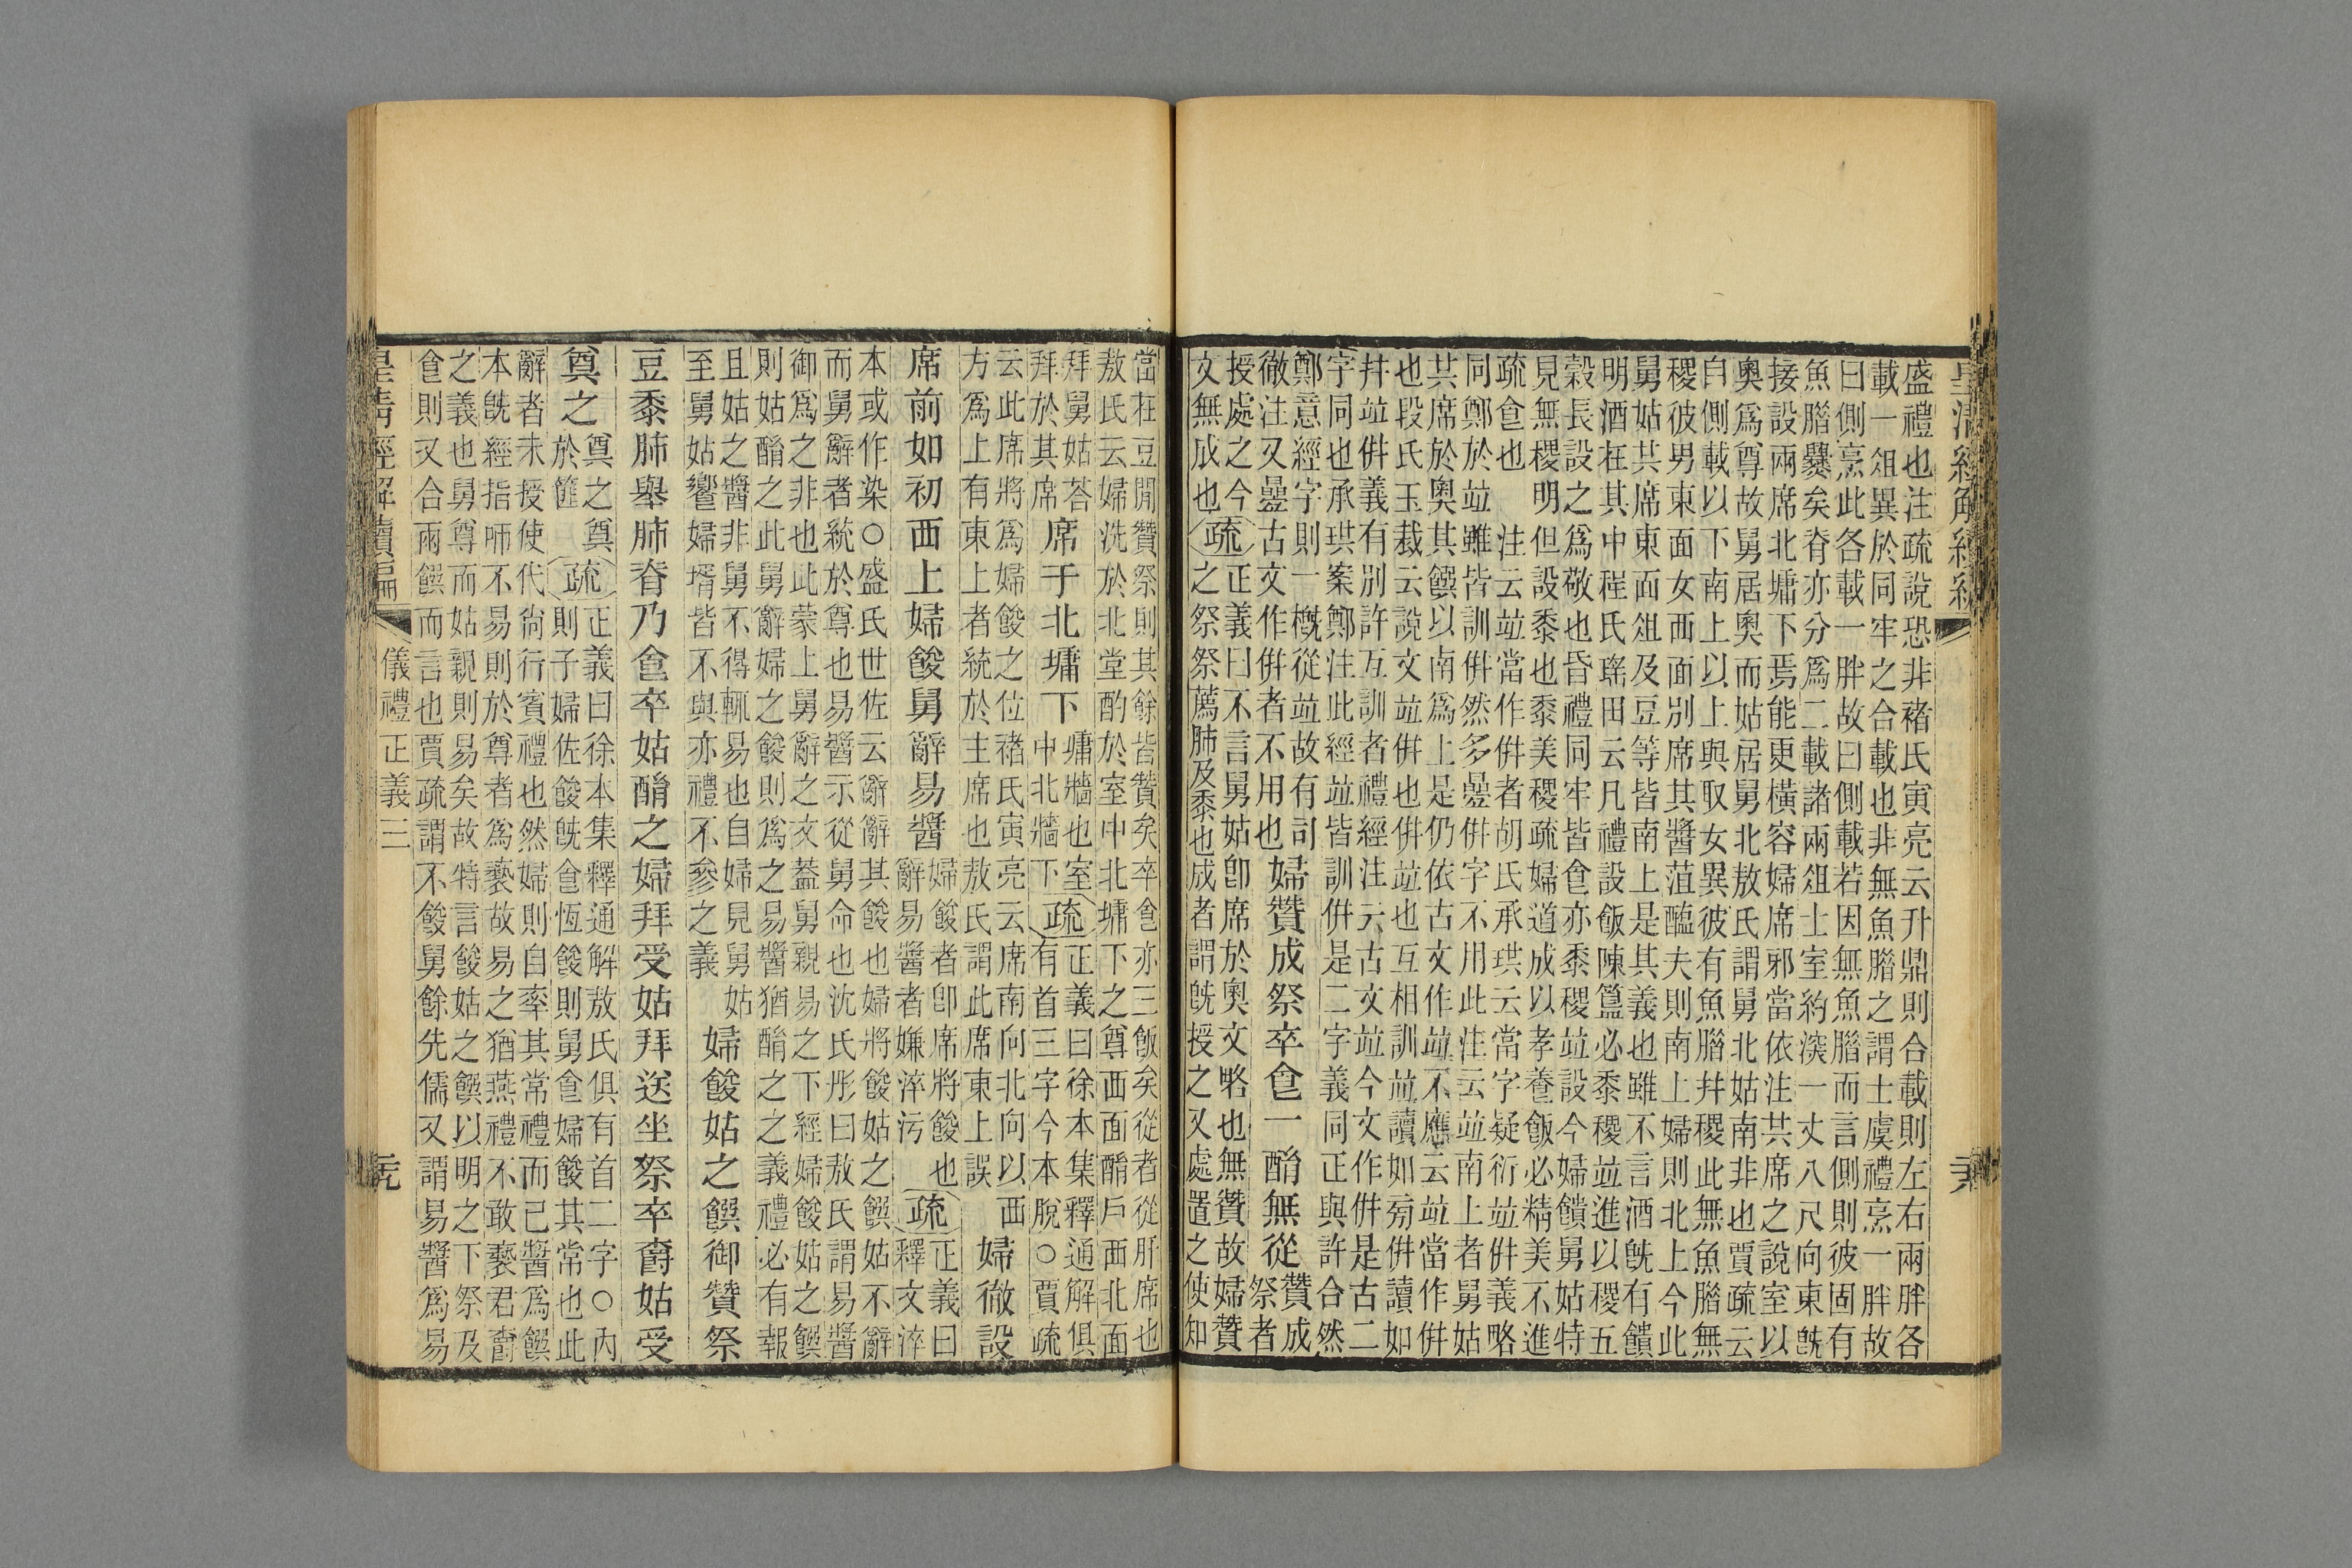 盛禮也注疏說恐非褚氏寅亮云升鼎則合載則左右兩胖各
載一俎異於同牢之合載也非無魚腊之謂士虞禮烹一胖故
曰側烹此各載一胖故曰側載若因無魚腊而言側則彼固有
魚腊爨矣脊亦分爲二載諸兩俎士室約深一丈八尺向東旣
接設兩席北墉下焉能更橫容婦席邪當依注共席之說室以
奧爲尊故舅居奧而姑居舅北敖氏謂舅北姑南非也賈疏云
自側載以下南上以上與取女異彼有魚腊幷稷此無魚腊無
稷彼男東面女西面別席其醬菹醢夫則南上婦則北上今此
舅姑共席東面俎及豆等皆南上是其義也雖不言酒旣有饋
明酒在其中程氏瑤田云凡禮設飯陳簋必黍稷竝進以稷五
穀長設之爲敬也昏禮同牢皆食亦黍稷竝設今婦饋舅姑特
見無稷明但設黍也黍美稷疏婦道成以孝養飯必精美不進
疏食也 注云竝當作併者胡氏承珙云當字疑衍竝併義略
同鄭於竝雖皆訓併然多疊併字不用此注云竝南上者舅姑
共席於奧其饌以南爲上是仍依古文作竝不應云竝當作併
也段氏玉裁云說文竝併也併竝也互相訓竝讀如旁併讀如
幷竝併義有別許互訓者禮經注云古文竝今文作併是古二
字同也承珙案鄭注此經竝皆訓併是二字義同正與許合然
鄭意經字則一槪從竝故有司
徹注又疊古文作併者不用也
婦贊成祭卒食一酳無從
贊成
祭者
授處之今
文無成也
疏
正義曰不言舅姑卽席於奧文略也無贊故婦贊
之祭祭薦肺及黍也成者謂旣授之又處置之使知
當在豆閒贊祭則其餘皆贊矣卒食亦三飯矣從者從肝席也
敖氏云婦洗於北堂酌於室中北墉下之尊西面酳戶西北面
拜舅姑荅
拜於其席
席于北墉下
墉牆也室
中北牆下
疏
正義曰徐本集釋通解俱
有首三字今本脫○賈疏
云此席將爲婦餕之位褚氏寅亮云席南向北向以西
方爲上有東上者統於主席也敖氏謂此席東上誤
婦徹設
席前如初西上婦餕舅辭易醬
婦餕者卽席將餕也
辭易醬者嫌淬污
疏
正義曰
釋文淬
本或作染○盛氏世佐云辭辭其餕也婦將餕姑之饌姑不辭
而舅辭者統於尊也易醬示從舅命也沈氏彤曰敖氏謂易醬
御爲之非也此蒙上舅辭之文蓋舅親易之下經婦餕姑之饌
則姑酳之此舅辭婦之餕則爲之易醬猶酳之之義禮必有報
且姑之醬非舅不得輒易也自婦見舅姑
至舅姑饗婦壻皆不與亦禮不參之義
婦餕姑之饌御贊祭
豆黍肺舉肺脊乃食卒姑酳之婦拜受姑拜送坐祭卒爵姑受
奠之
奠之奠
於篚
疏
正義曰徐本集釋通解敖氏俱有首二字○內
則子婦佐餕旣食恆餕則舅食婦餕其常也此
辭者未授使代尙行賓禮也然婦則自率其常禮而已醬爲饌
本旣經指㖠不易則於尊者爲褻故易之猶燕禮不敢褻君爵
之義也舅尊而姑親則易矣故特言餕姑之饌以明之下祭及
食則又合兩饌而言也賈疏謂不餕舅餘先儒又謂易醬爲易
皇清經解續編 儀禮正義三